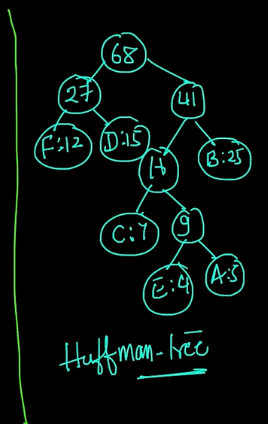 68
27 41
F:12 D:15 16 B:25
C:7 9
E:4 A:5
Huffman-tree